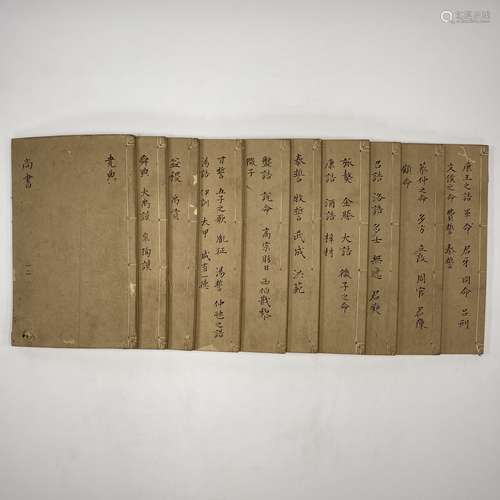 堯典
尚書
舜典 大禹謨 皋陶謨
益稷 禹貢
甘誓 五子之歌 胤征 湯誓 仲虺之誥
湯誥 伊訓 太甲 咸有一德
說命 高宗肜日 西伯戡黎
微子
泰誓 牧誓 武成 洪範
旅獒 金縢 大誥 微子之命
康誥 酒誥 梓材
召誥 洛誥 多士 無逸 君奭
蔡仲之命 多方 立政 周官 君陳
顧命
康王之誥 畢命 君牙 冏命 呂刑
文侯之命 費誓 秦誓